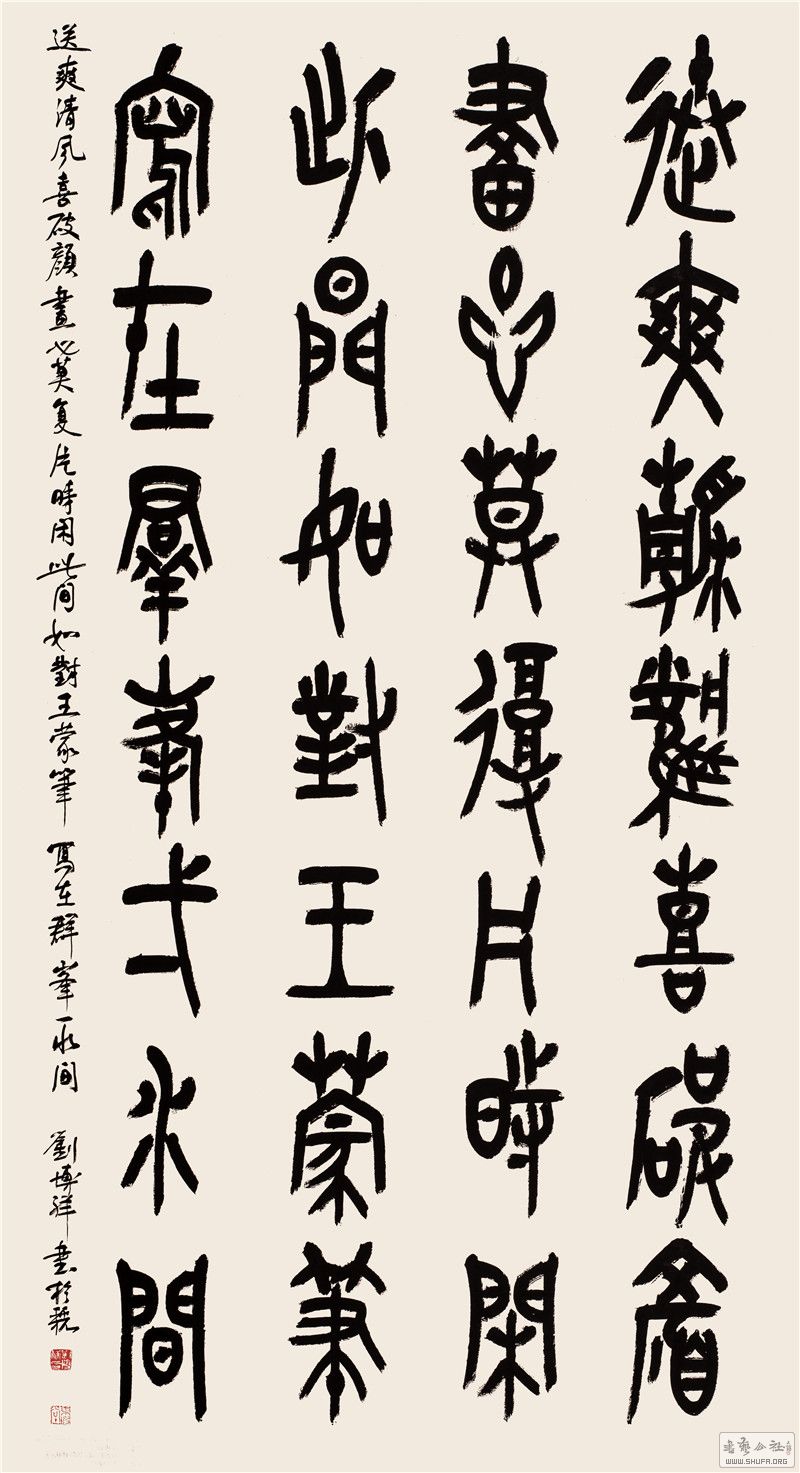 送爽清風喜破顏
畫心莫復片時閑
此閒如對王蒙筆
寫在羣峯弌水間
送爽清風喜破顏畫心莫复片時閑此间如對王蒙筆寫在群峯一水间 劉博祥書於
書藝公社
WWW.SHUFA.ORG